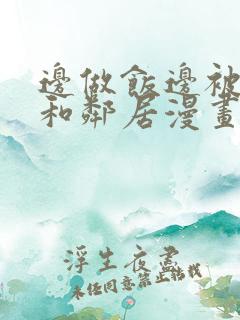 邊做飯邊被
和鄰居漫畫
浮生夜盡
未任同意禁止轉載